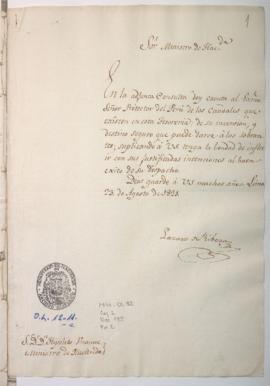 1
Sor. Ministro de Hacda.
En la adjunta Consulta doy cuenta al Exmo.
Señor Protector del Perú de los Caudales que
existen en esta Tesoreria; de su inversion, y
destino seguro que puede darse á los sobran
tes; suplicando á VS tenga la bondad de influir
con sus justificadas intenciones al buen
exito de su Despacho.
Dios guarde á VS muchos años. Lima
23 de Agosto de 1821
Lazaro de Ribera
O.L. 12-11
S. D. D. Hipolito Unanue
Ministro de Hacienda